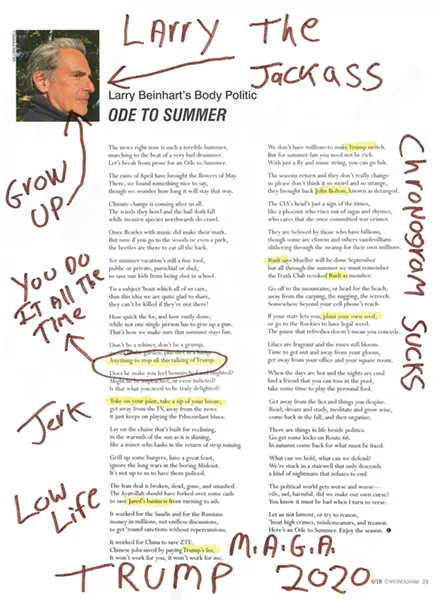 LARRY THE
JACKASS
Larry Beinhart's Body Politic
ODE TO SUMMER
GROW
UP
YOU DO
IT ALL THE
TIME
JERK
LOW
LIFE
The news right now is such a terrible bummer,
marching to the beat of a very bad drummer.
Let's break from prose for an Ode to Summer.
The rains of April have brought the flowers of May.
There, we found something nice to say,
though we wonder how long it will stay that way.
Climate change is coming after us all.
The winds they howl and the hail doth fall
while invasive species northwards do crawl.
Once Beatles with music did make their mark.
But now if you go to the woods or even a park,
the beetles are there to eat all the bark.
Yet summer vacation's still a fine tool,
public or private, parochial or shul,
to save our kids from being shot in school.
Tis a subject 'bout which all of us care,
thus this idea we are quite glad to share,
they can't be killed if they're not there!
How quick the fox, and how easily done,
while not one single person has to give up a gun.
That's how we make sure that summer stays fun.
Don't be a whiner, don't be a grump,
Anything to stop all this talking of Trump.
Does he make you feel besmirched and blighted?
Might he be impeached, or even indicted?
Is that what you need to be truly delighted?
Toke on your joint, take a sip of your booze,
get away from the TV, away from the news
it just keeps on playing the Pulsecurdant blues.
Lay on the chaise that's built for reclining,
in the warmth of the sun as it is shining,
like a miner who basks in the return of strip mining.
Grill up some burgers, have a great feast,
ignore the long wars in the boring Mideast.
It's not up to us to have them policed.
The Iran deal is broken, dead, gone, and smashed.
The Ayatollah should have forked over some cash
to save Jared's business from turning to ash.
It worked for the Saudis and for the Russians
money in millions, not endless discussions,
to get 'round sanctions without repercussions.
It worked for China to save ZTE.
Chinese jobs saved by paying Trump's fee.
It won't work for you, it won't work for me.
We don't have millions to make Trump switch.
But for summer fun you need not be rich.
With just a fly and some string, you can go fish.
The seasons return and they don't really change
so please don't think it so weird and so strange,
they brought back John Bolton, known as deranged.
The CIA's head's just a sign of the times,
like a phoenix who rises out of signs and rhymes,
who cares that she once committed war crimes.
They are beloved by those who have billions,
though some are clowns and others vaudevillians
slithering through the swamp for their own millions.
Rudi says Mueller will be done September
but all through the summer we must remember
the Truth Club revoked Rudi as member.
Go off to the mountains, or head for the beach,
away from the carping, the nagging, the screech,
Somewhere beyond your cell phone's reach.
If your state lets you, plant your own weed,
or go to the Rockies to have legal weed.
The pause that refreshes doesn't mean you concede.
Lilacs are fragrant and the roses still bloom.
Time to get out and away from your gloom,
get away from your office and your square room.
When the days are hot and the nights are cool
find a friend that you can toss in the pool,
take some time to play the personal fool.
Get away from the lies and they things you despise.
Read, dream and study, meditate and grow wise,
come back in the fall, and then organize.
There are things in life beside politics.
Go get some kicks on Route 66.
In autumn come back for what must be fixed.
What can we hold, what can we defend?
We're stuck in a stairwell that only descends
a kind of nightmare that refuses to end.
The political world gets worse and worse—
vile, sad, harmful, did we make our own curse?
You know it must be bad when I turn to verse.
Let us not lament, or try to reason,
'bout high crimes, misdemeanors, and treason.
Here's an Ode to Summer. Enjoy the season.
CHRONOGRAM SUCKS
M.A.G.A.
TRUMP 2020
6/18 CHRONOGRAM 23